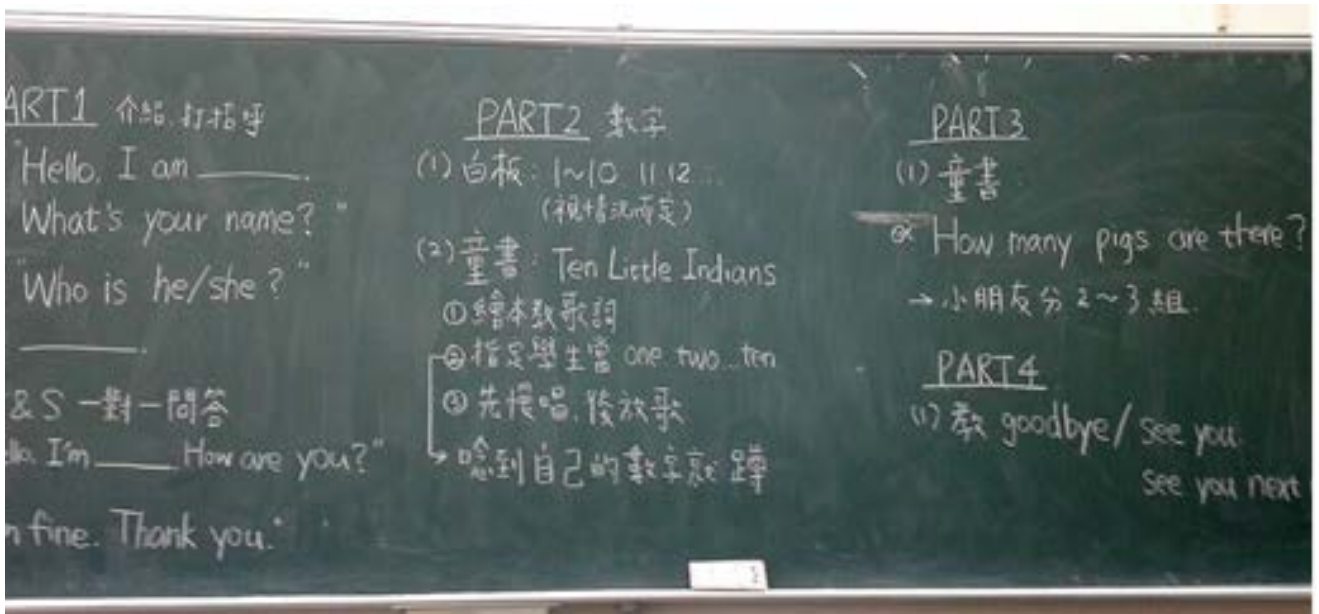 ART1 介紹.打招呼
"Hello. I am ____.
What's your name?"
"Who is he/she?"
____.
& S 一對一問答
llo. I'm ____ How are you?"
m fine. Thank you."
PART2 數字
(1) 白板: 1~10 11 12...
(視情況而定)
(2) 童書: Ten Little Indians
① 繪本教歌詞
② 指定學生當 one two...ten
③ 先慢唱.後放歌
→ 唸到自己的數字就蹲
PART3
(1) 童書.
How many pigs are there?
→ 小朋友分 2~3 組.
PART4
(1) 教 goodbye/ see you.
see you next